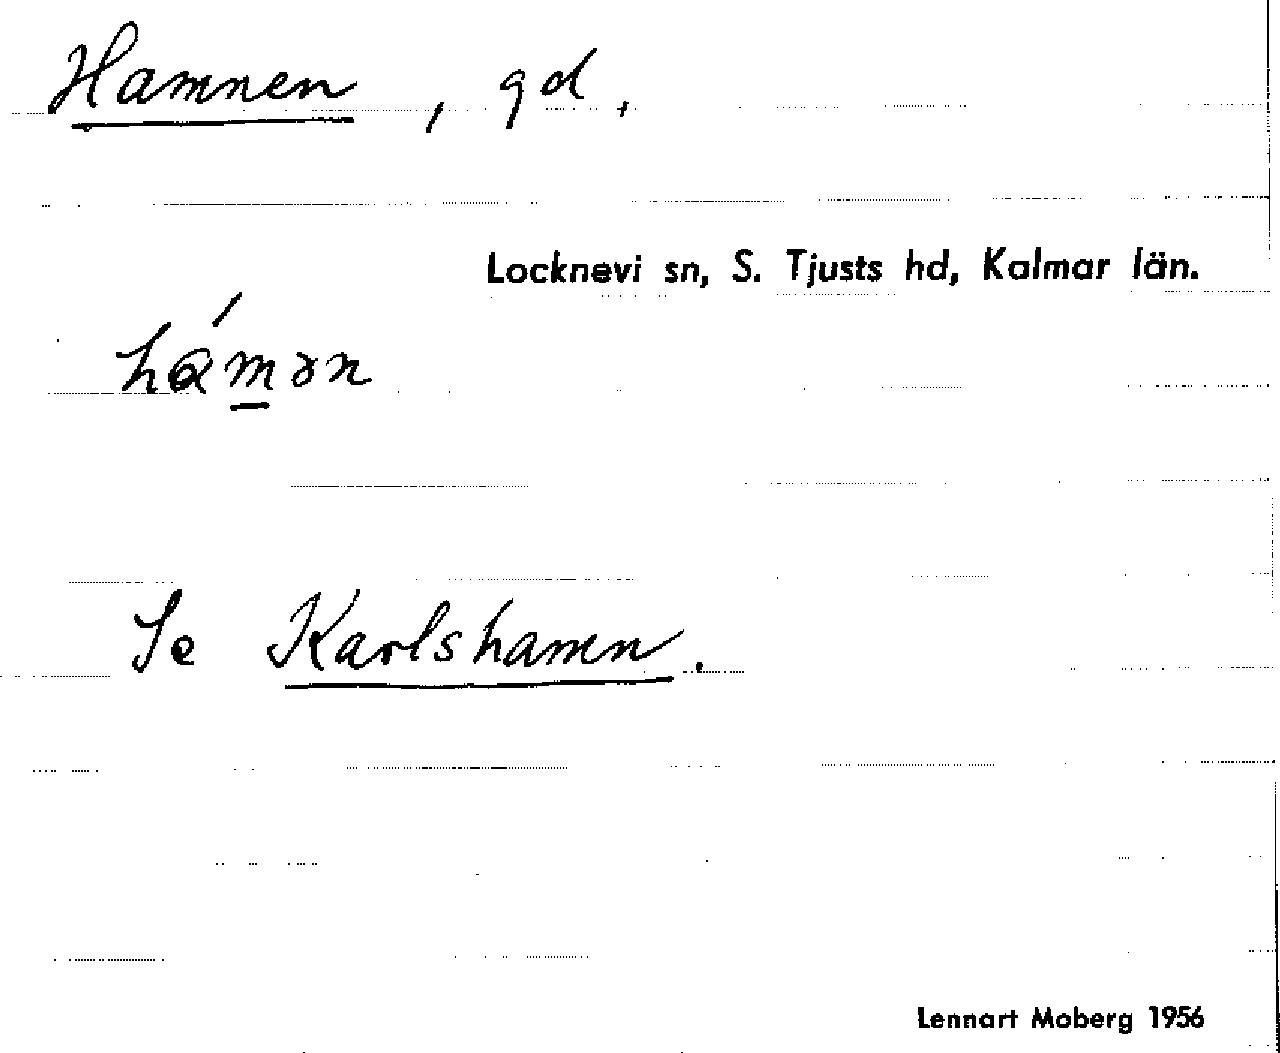 Hamnen, gd.
Locknevi sn, S. Tjusts hd, Kalmar län.
hámən
Se Karlshamn.
Lennart Moberg 1956